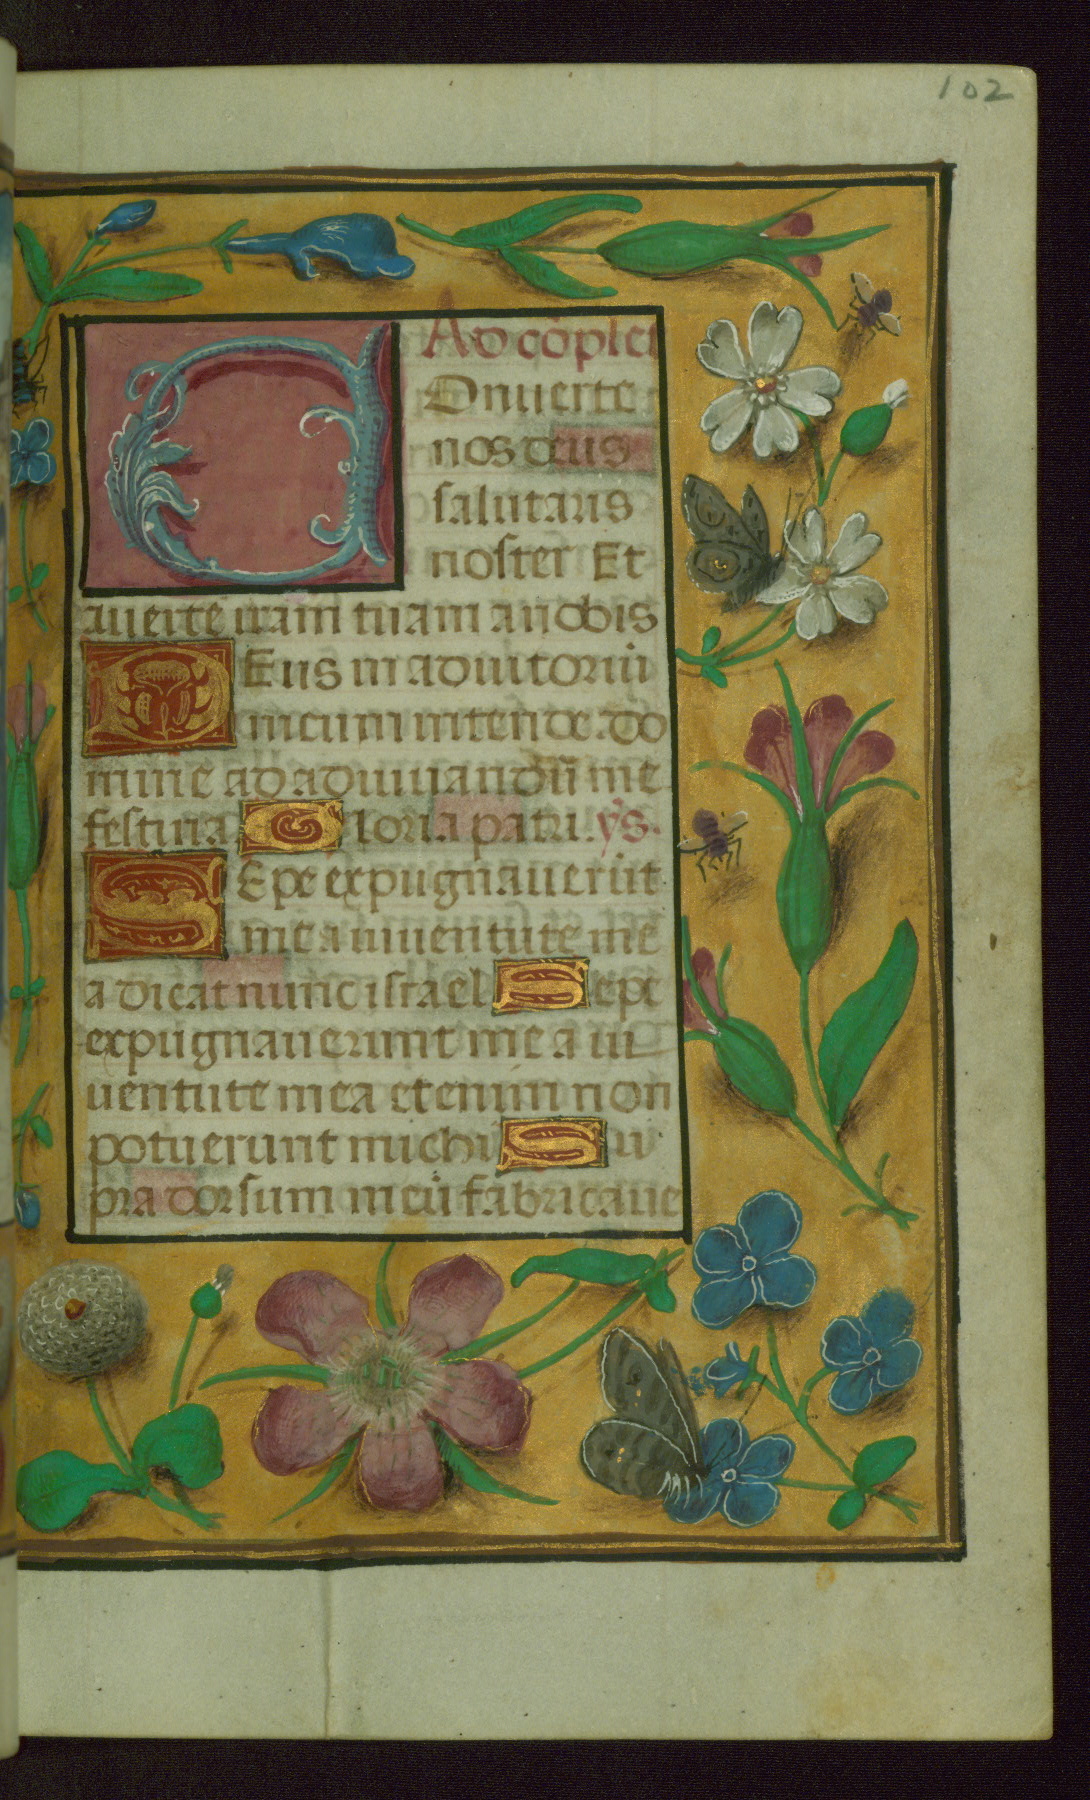 102
Ad cōplet
COnuerte
nos deus
salutaris
noster Et
auerte iram tuam a nobis
DEus in adiutoriū
meum intende. do
mine ad adiuuandū me
festina Gloria patri. ps.
SEpe expugnauerūt
me a iuuentute me
a dicat nunc israel Sepe
expugnauerunt me a iu
uentute mea etenim non
potuerunt michi Su
pra dorsum meū fabricaue